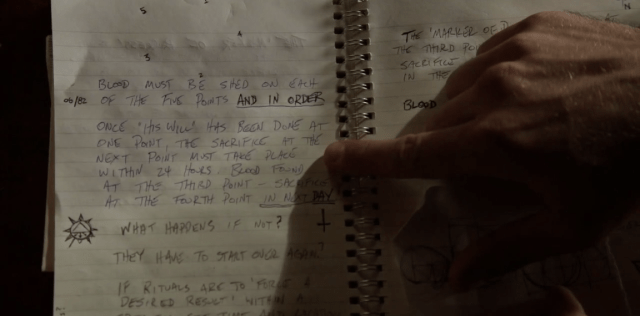 5
4
3
2
BLOOD MUST BE SHED ON EACH
06/82 OF THE FIVE POINTS AND IN ORDER
ONCE 'HIS WILL' HAS BEEN DONE AT
ONE POINT, THE SACRIFICE AT THE
NEXT POINT MUST TAKE PLACE
WITHIN 24 HOURS. BLOOD FOUND
AT THE THIRD POINT - SACRIFICE
AT THE FOURTH POINT IN NEXT DAY
WHAT HAPPENS IF NOT?
THEY HAVE TO START OVER AGAIN?
IF RITUALS ARE TO 'FORCE A
DESIRED RESULT' WITHIN A
THE 'MARKER OF
THE THIRD
SACRIFICE
IN THE
BLOOD